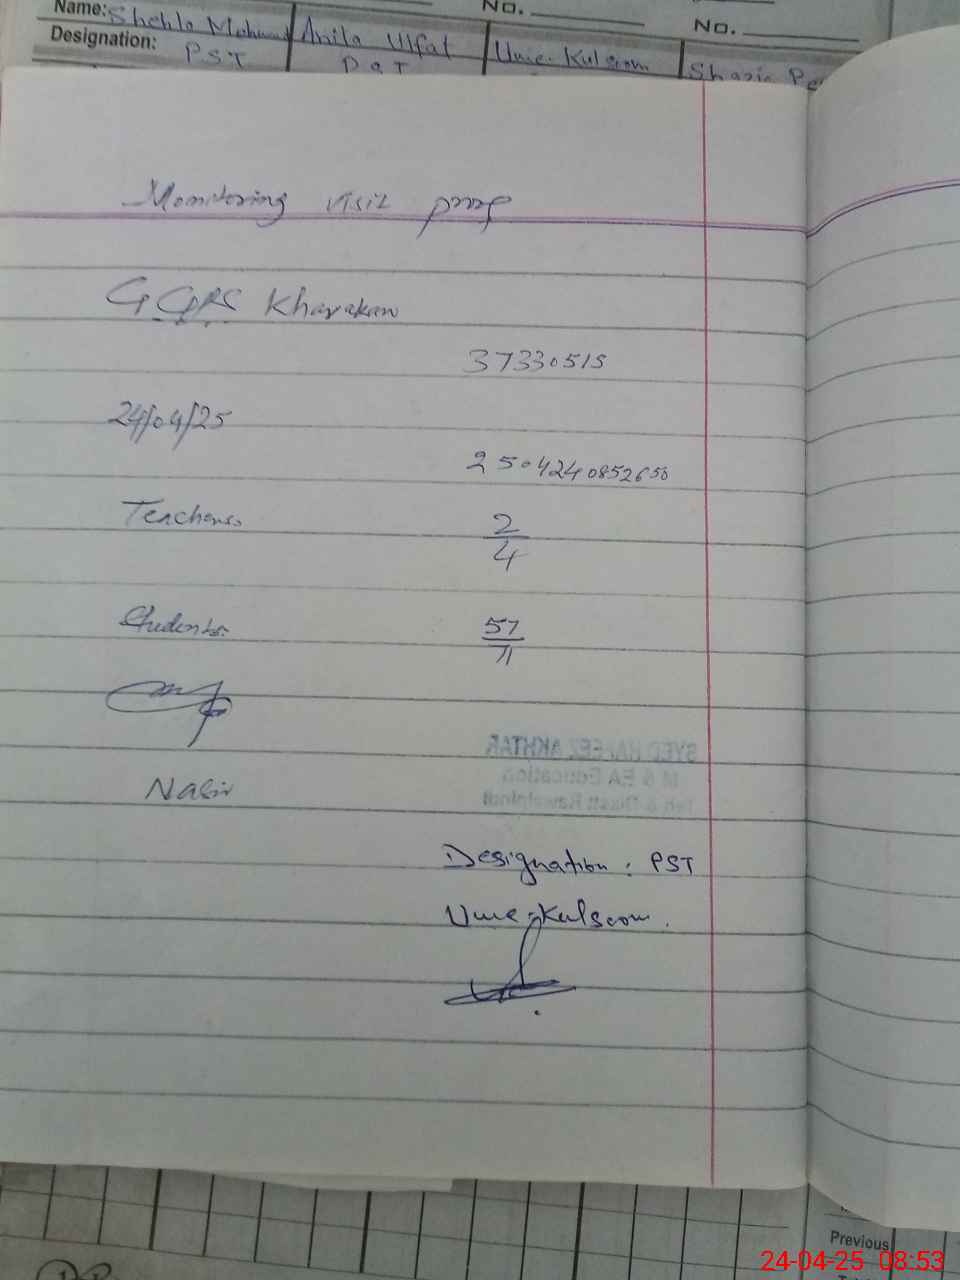 Name: Shehla Mehmud Anila Ulfat Ume-Kulsoom Shazia
No.
No.
Designation: PST PST
Monitoring visit proof
GGPS Kharakan
37330515
24/04/25
2504240852650
Teachers.
2
4
Students.
57
71
Nasir
SYED HAFEEZ AKHTAR
M & EA Education
Teh & Distt Rawalpindi
Designation: PST
Ume-Kulsoom.
Previous
24-04-25 08:53